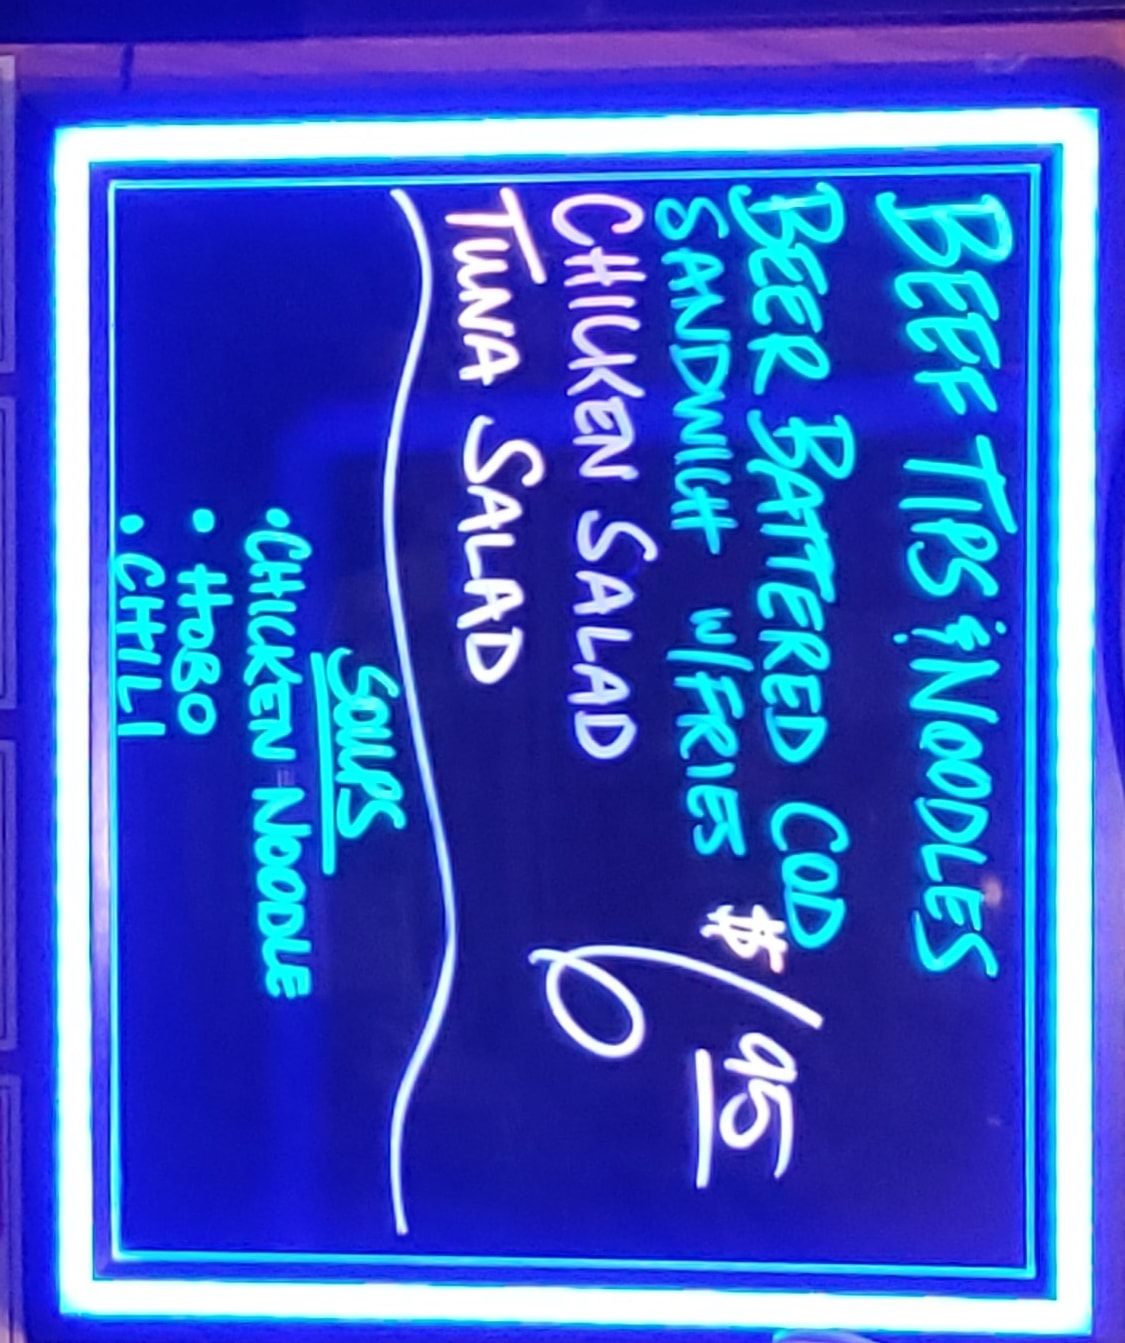 BEEF TIPS & NOODLES
BEER BATTERED COD
SANDWICH W/FRIES
CHICKEN SALAD
TUNA SALAD
$6 95
SOUPS
• CHICKEN NOODLE
• HOBO
• CHILI